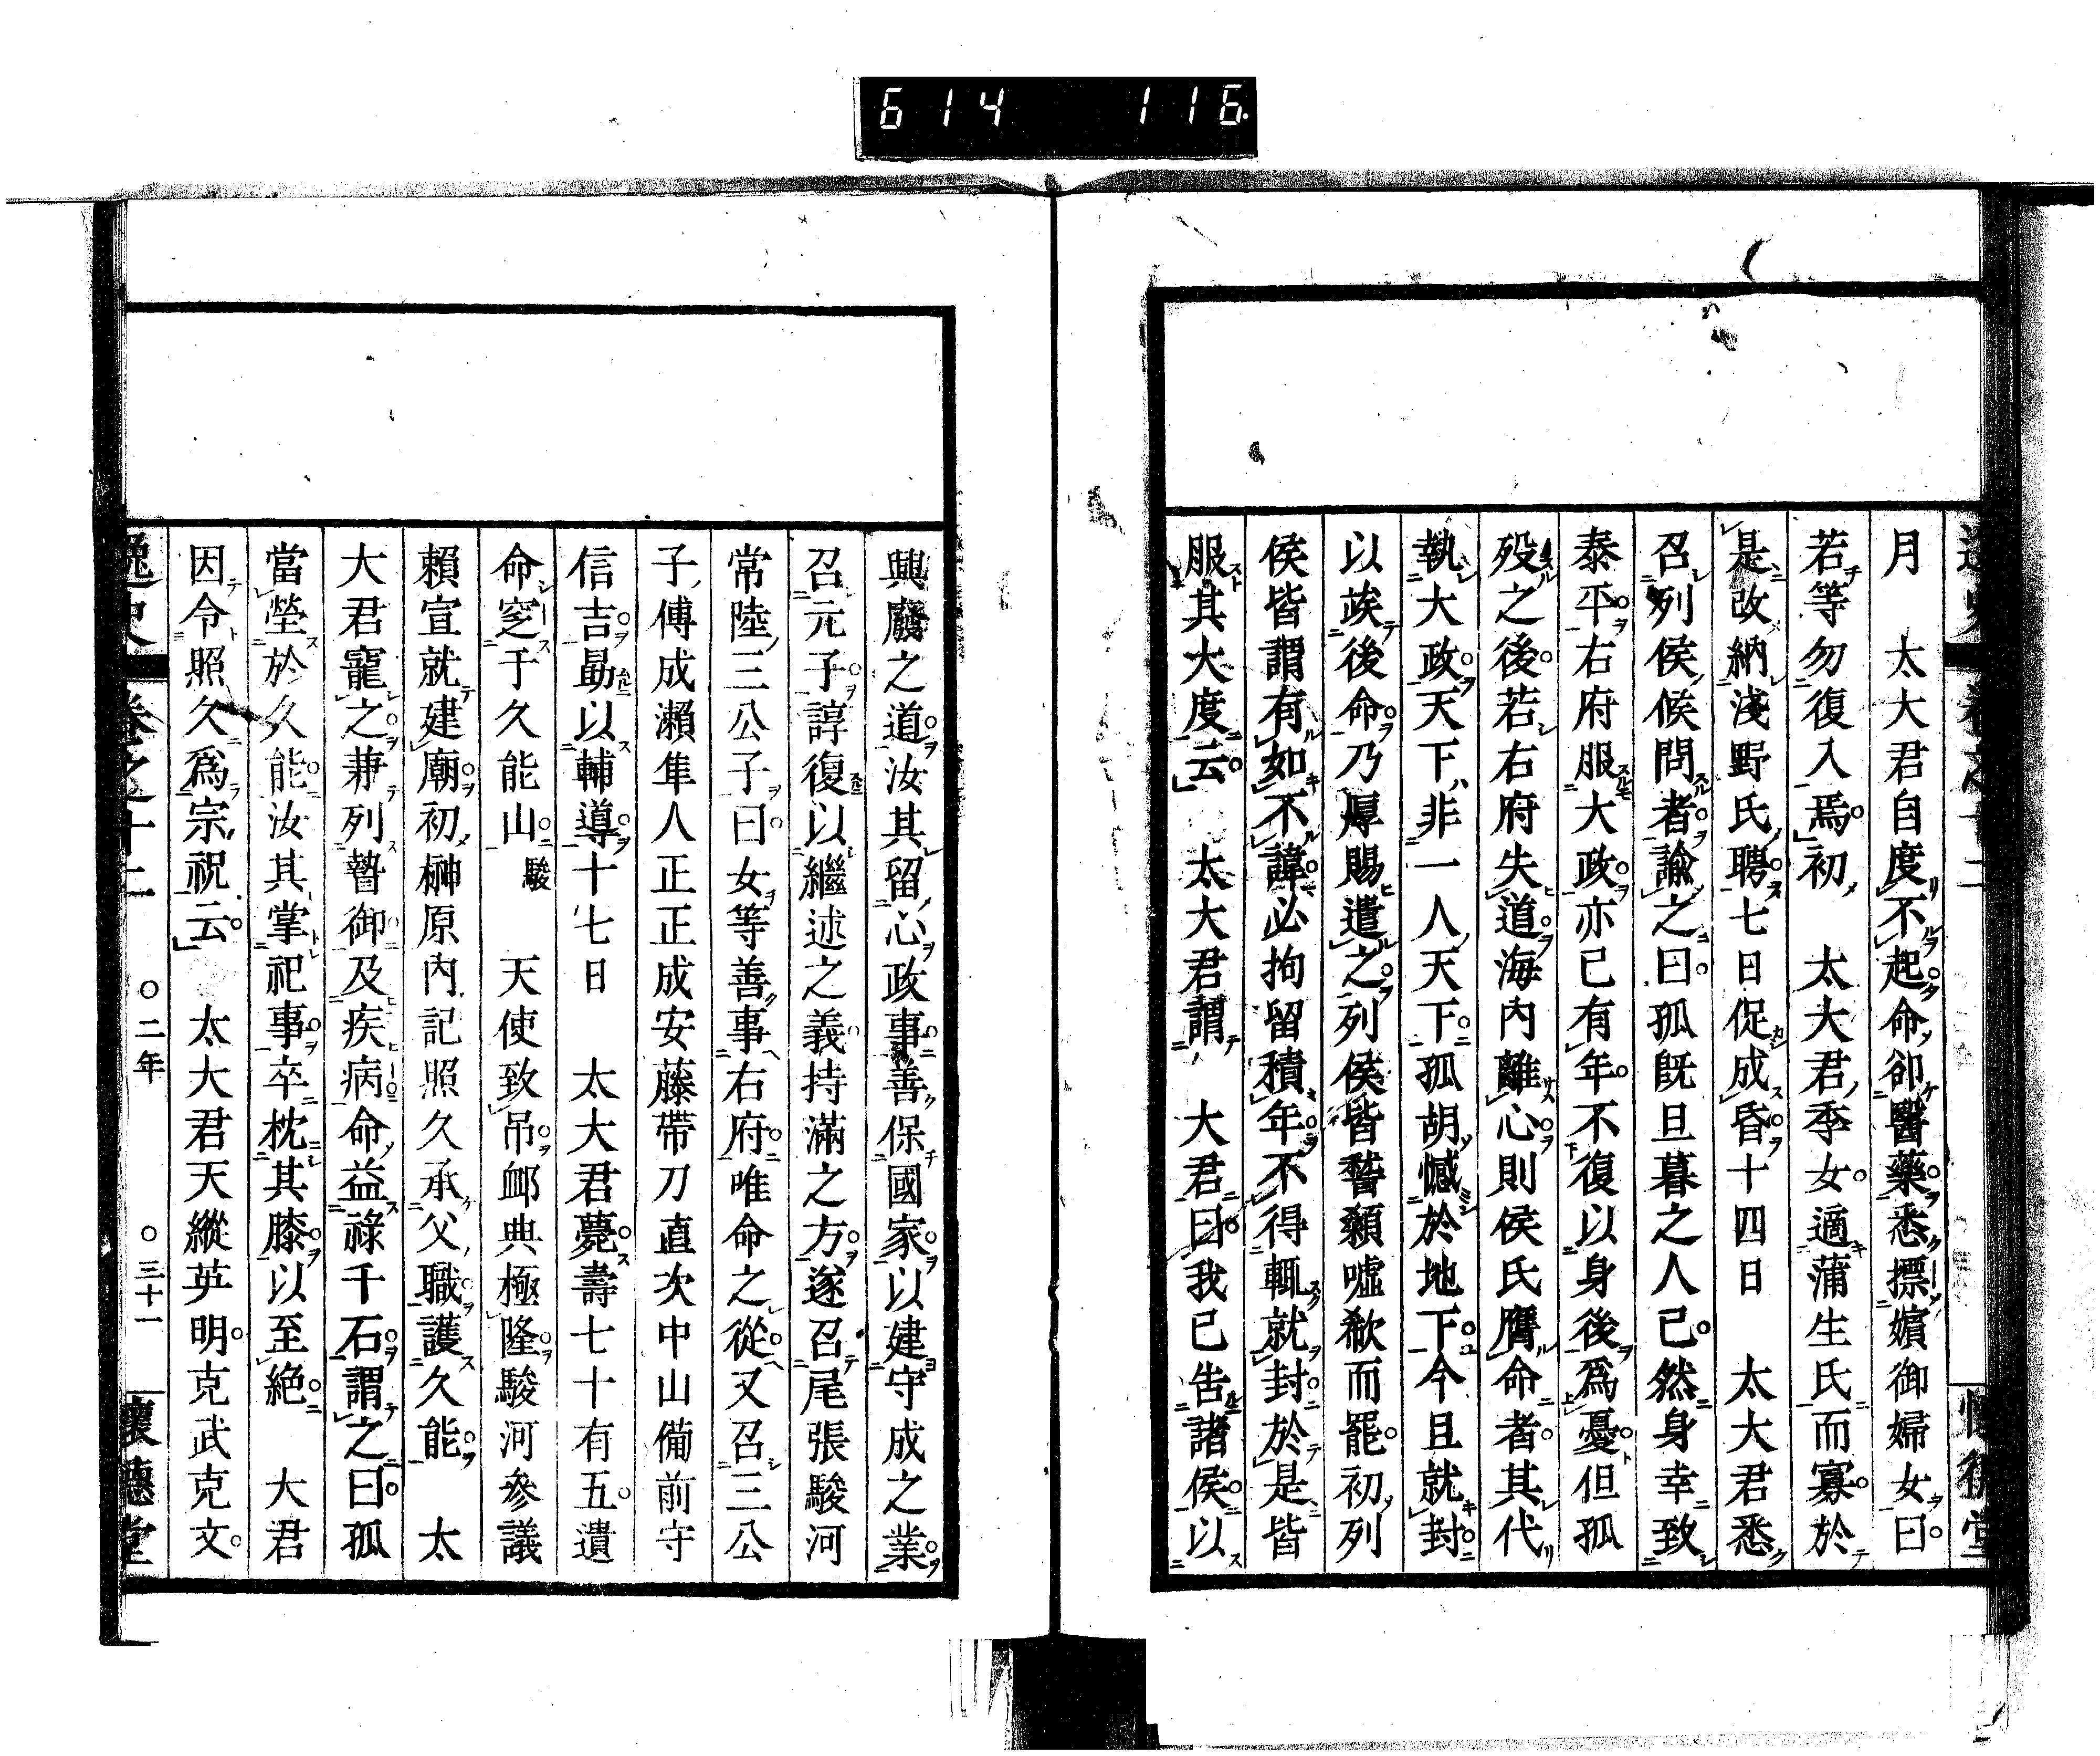 614 116
月　太大君自度不起命卻醫藥悉摽嬪御婦女曰
若等勿復入焉初　太大君季女適蒲生氏而寡於
是改納淺野氏聘七日促成昏十四日　太大君悉
召列侯候問者諭之曰孤既旦暮之人已然身幸致
泰平右府服大政亦已有年不復以身後爲憂但孤
歿之後若右府失道海内離心則侯氏膺命者其代
執大政天下非一人天下孤胡憾於地下今且就封
以竢後命乃厚賜遣之列侯皆瞀顙噓欷而罷初列
侯皆謂有如不諱必拘留積年不得輒就封於是皆
服其大度云　太大君謂　大君曰我已告諸侯以
興廢之道汝其留心政事善保國家以建守成之業
召元子諄復以繼述之義持滿之方遂召尾張駿河
常陸三公子曰女等善事右府唯命之從又召三公
子傅成瀨隼人正正成安藤帶刀直次中山備前守
信吉勗以輔導十七日　太大君薨壽七十有五遺
命窆于久能山駿　天使致吊卹典極隆駿河參議
賴宣就建廟初榊原内記照久承父職護久能　太
大君寵之兼列暬御及疾病命益祿千石謂之曰孤
當塋於久能汝其掌祀事卒枕其膝以至絶　大君
因令照久爲宗祝云　太大君天縱英明克武克文
逸史 卷之十二 〇二年 〇三十一 懷德堂